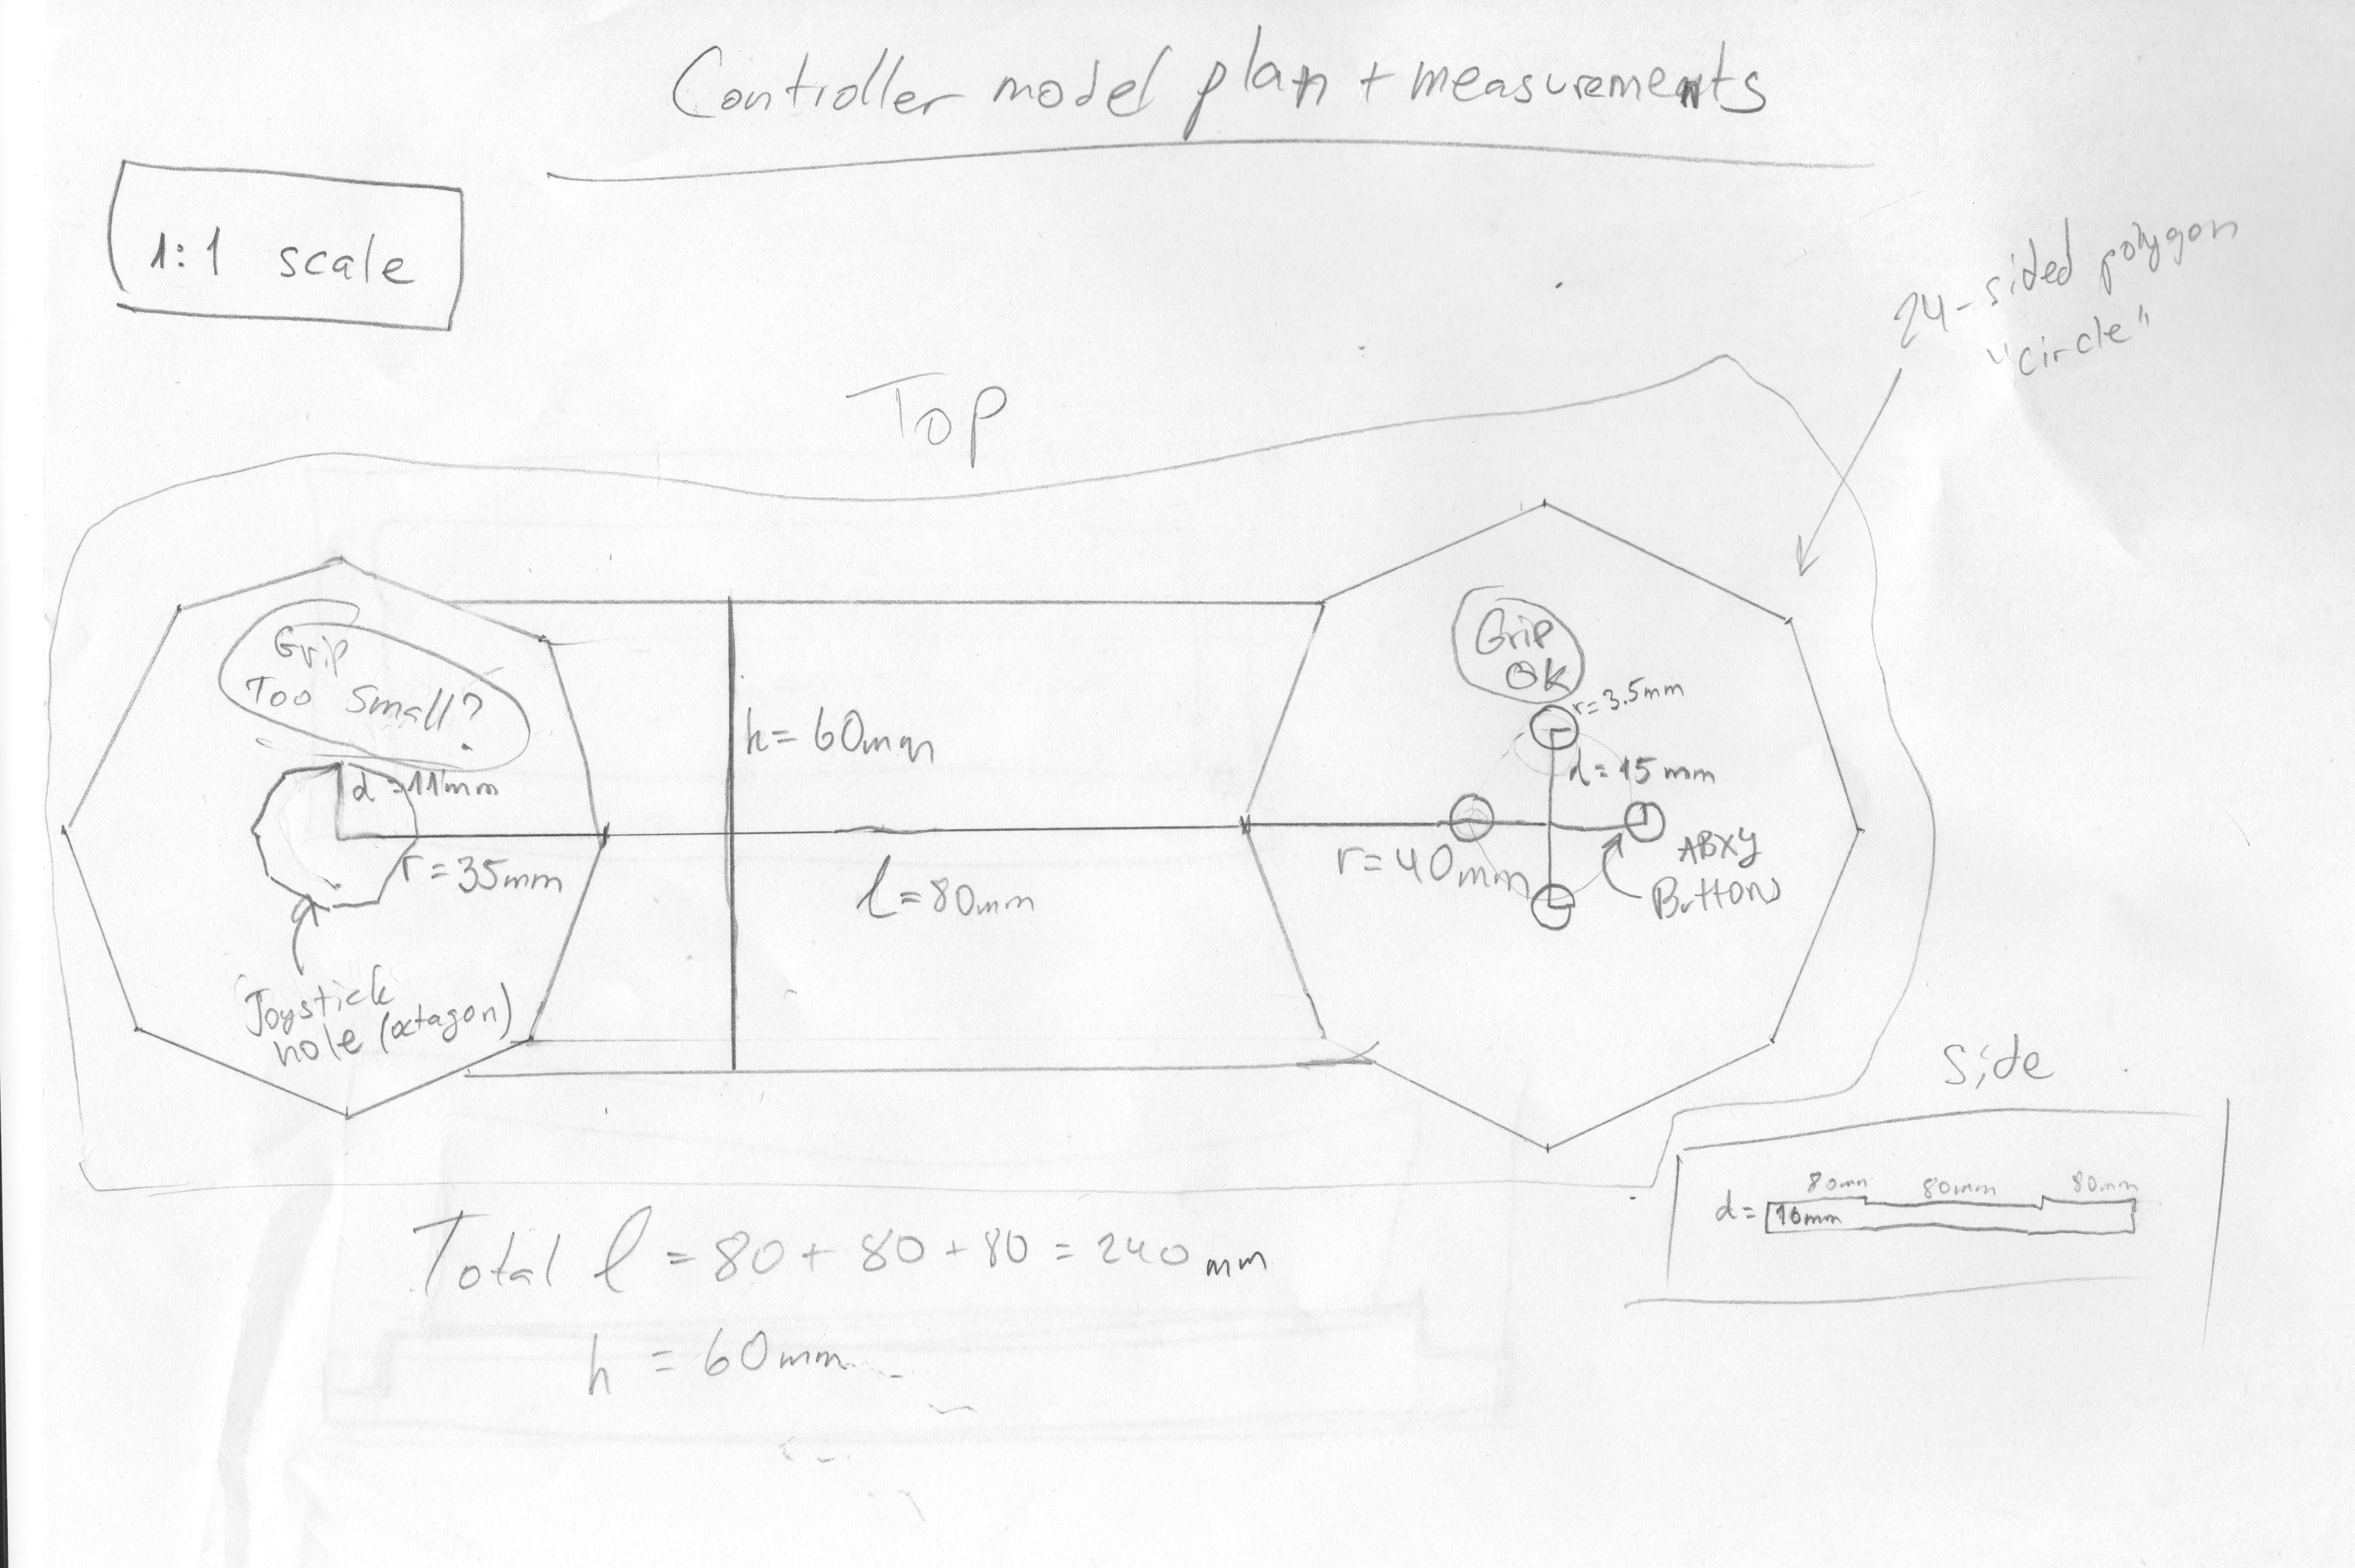 Controller model plan + measurements
1:1 scale
24-sided polygon
"circle"
Top
Grip
Too small?
d=11mm
r=35mm
Joystick
hole (octagon)
h=60mm
l=80mm
Grip
OK
r=3.5mm
d=15mm
r=40mm
ABXY
Buttons
Side
80mm 80mm 80mm
d= 16mm
Total l = 80+80+80 = 240mm
h = 60mm